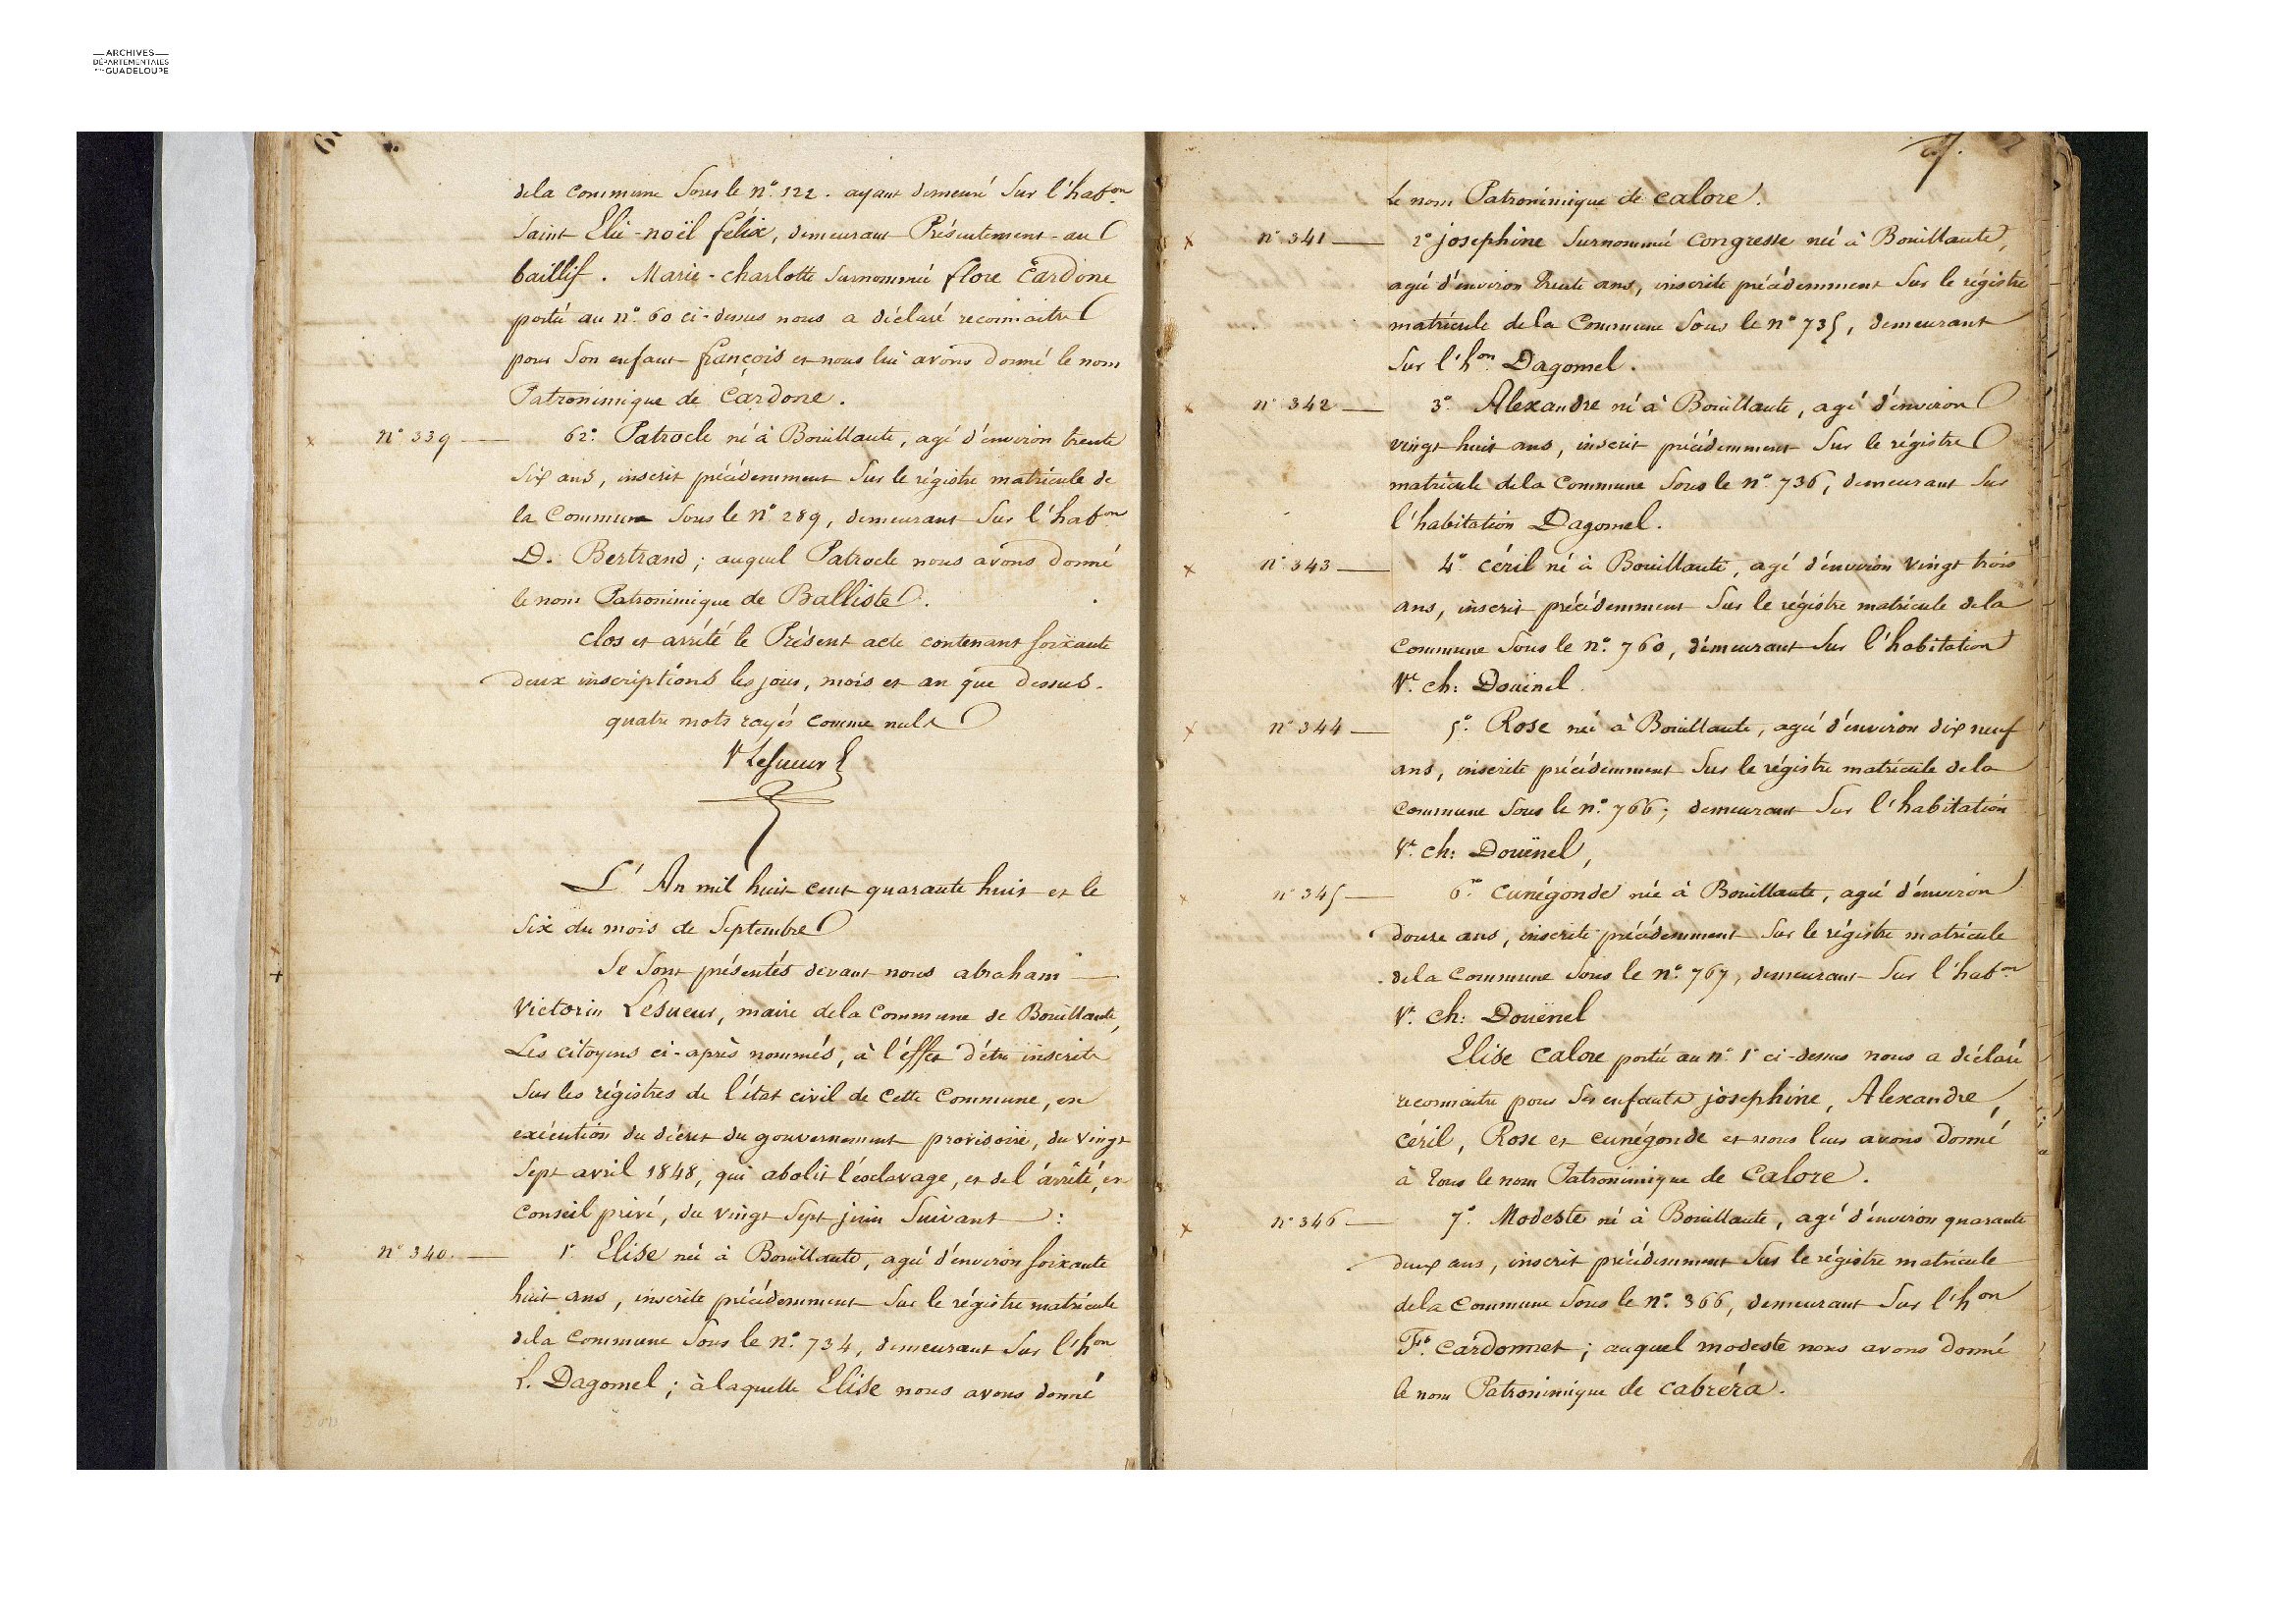 ARCHIVES
DÉPARTEMENTALES
GUADELOUPE
dela commune Sous le n.° 122. ayant demeuré Sur l'hab.on
Saint Elie-noël félix, demeurant Présentement au
baillif. Marie-charlotte Surnommée flore Cardone
portée au n.° 60 ci-dessus nous a déclaré reconnaitre
pour Son enfant françois et nous lui avons donné le nom
Patronimique de Cardone.
n° 339 — 62.° Patrocle né à Bouillante, agé d'environ trente
Six ans, inscrit précédemment Sur le régistre matricule de
la Commune Sous le N.° 289, demeurant Sur l'hab.on
D. Bertrand; auquel Patrocle nous avons donné
le nom Patronimique de Balliste.
clos et arrêté le Présent acte contenant soixante
deux inscriptions les jour, mois et an que dessus.
quatre mots rayés comme nuls
V Lesueur
L'An mil huit cent quarante huit et le
Six du mois de Septembre
Se Sont présentés devant nous abraham —
Victorin Lesueur, maire dela Commune de Bouillante,
Les citoyens ci-après nommés, à l'éffet d'être inscrits
Sur les régistres de l'état civil de Cette Commune, en
exécution du décret du gouvernement provisoire, du vingt
Sept avril 1848, qui abolit l'esclavage, et del'arrêté, en
Conseil privé, du vingt Sept juin Suivant:
n° 340. — 1.° Elise née à Bouillante, agée d'environ soixante
huit ans, inscrite précédemment Sur le régistre matricule
dela Commune Sous le N.° 734, demeurant Sur l'h.on
L. Dagomel; à laquelle Elise nous avons donné
7.
Le nom Patronimique de Calore.
n° 341 — 2° josephine Surnommée Congresse née à Bouillante,
agée d'environ trente ans, inscrite précédemment Sur le régistre
matricule dela Commune Sous le n° 735, demeurant
Sur l'h.on Dagomel.
n° 342 — 3.° Alexandre né à Bouillante, agé d'environ
vingt huit ans, inscrit précédemment Sur le régistre
matricule dela Commune Sous le N.° 736, demeurant Sur
l'habitation Dagomel.
n° 343 — 4.° Céril né à Bouillante, agé d'environ vingt trois
ans, inscrit précédemment Sur le régistre matricule dela
Commune Sous le n.° 760, demeurant Sur l'habitation
V.e Ch: Douënel.
n° 344 — 5.° Rose née à Bouillante, agée d'environ dix neuf
ans, inscrite précédemment Sur le régistre matricule dela
Commune Sous le n.° 766; demeurant Sur l'habitation
V.e Ch: Douënel,
n° 345 — 6.° Cunégonde née à Bouillante, agée d'environ
douze ans, inscrite précédemment Sur le régistre matricule
dela Commune Sous le N.° 767, demeurant Sur l'hab.on
V.e Ch: Douënel
Elise Calore portée au n.° 1.° ci-dessus nous a déclaré
reconnaitre pour Ses enfants josephine, Alexandre,
Céril, Rose et Cunégonde et nous leur avons donné
à tous le nom Patronimique de Calore.
n° 346 — 7.° Modeste né à Bouillante, agé d'environ quarante
deux ans, inscrit précédemment Sur le régistre matricule
dela Commune Sous le N.° 366, demeurant Sur l'h.on
F.s Cardonnet; auquel modeste nous avons donné
le nom Patronimique de Cabréra.